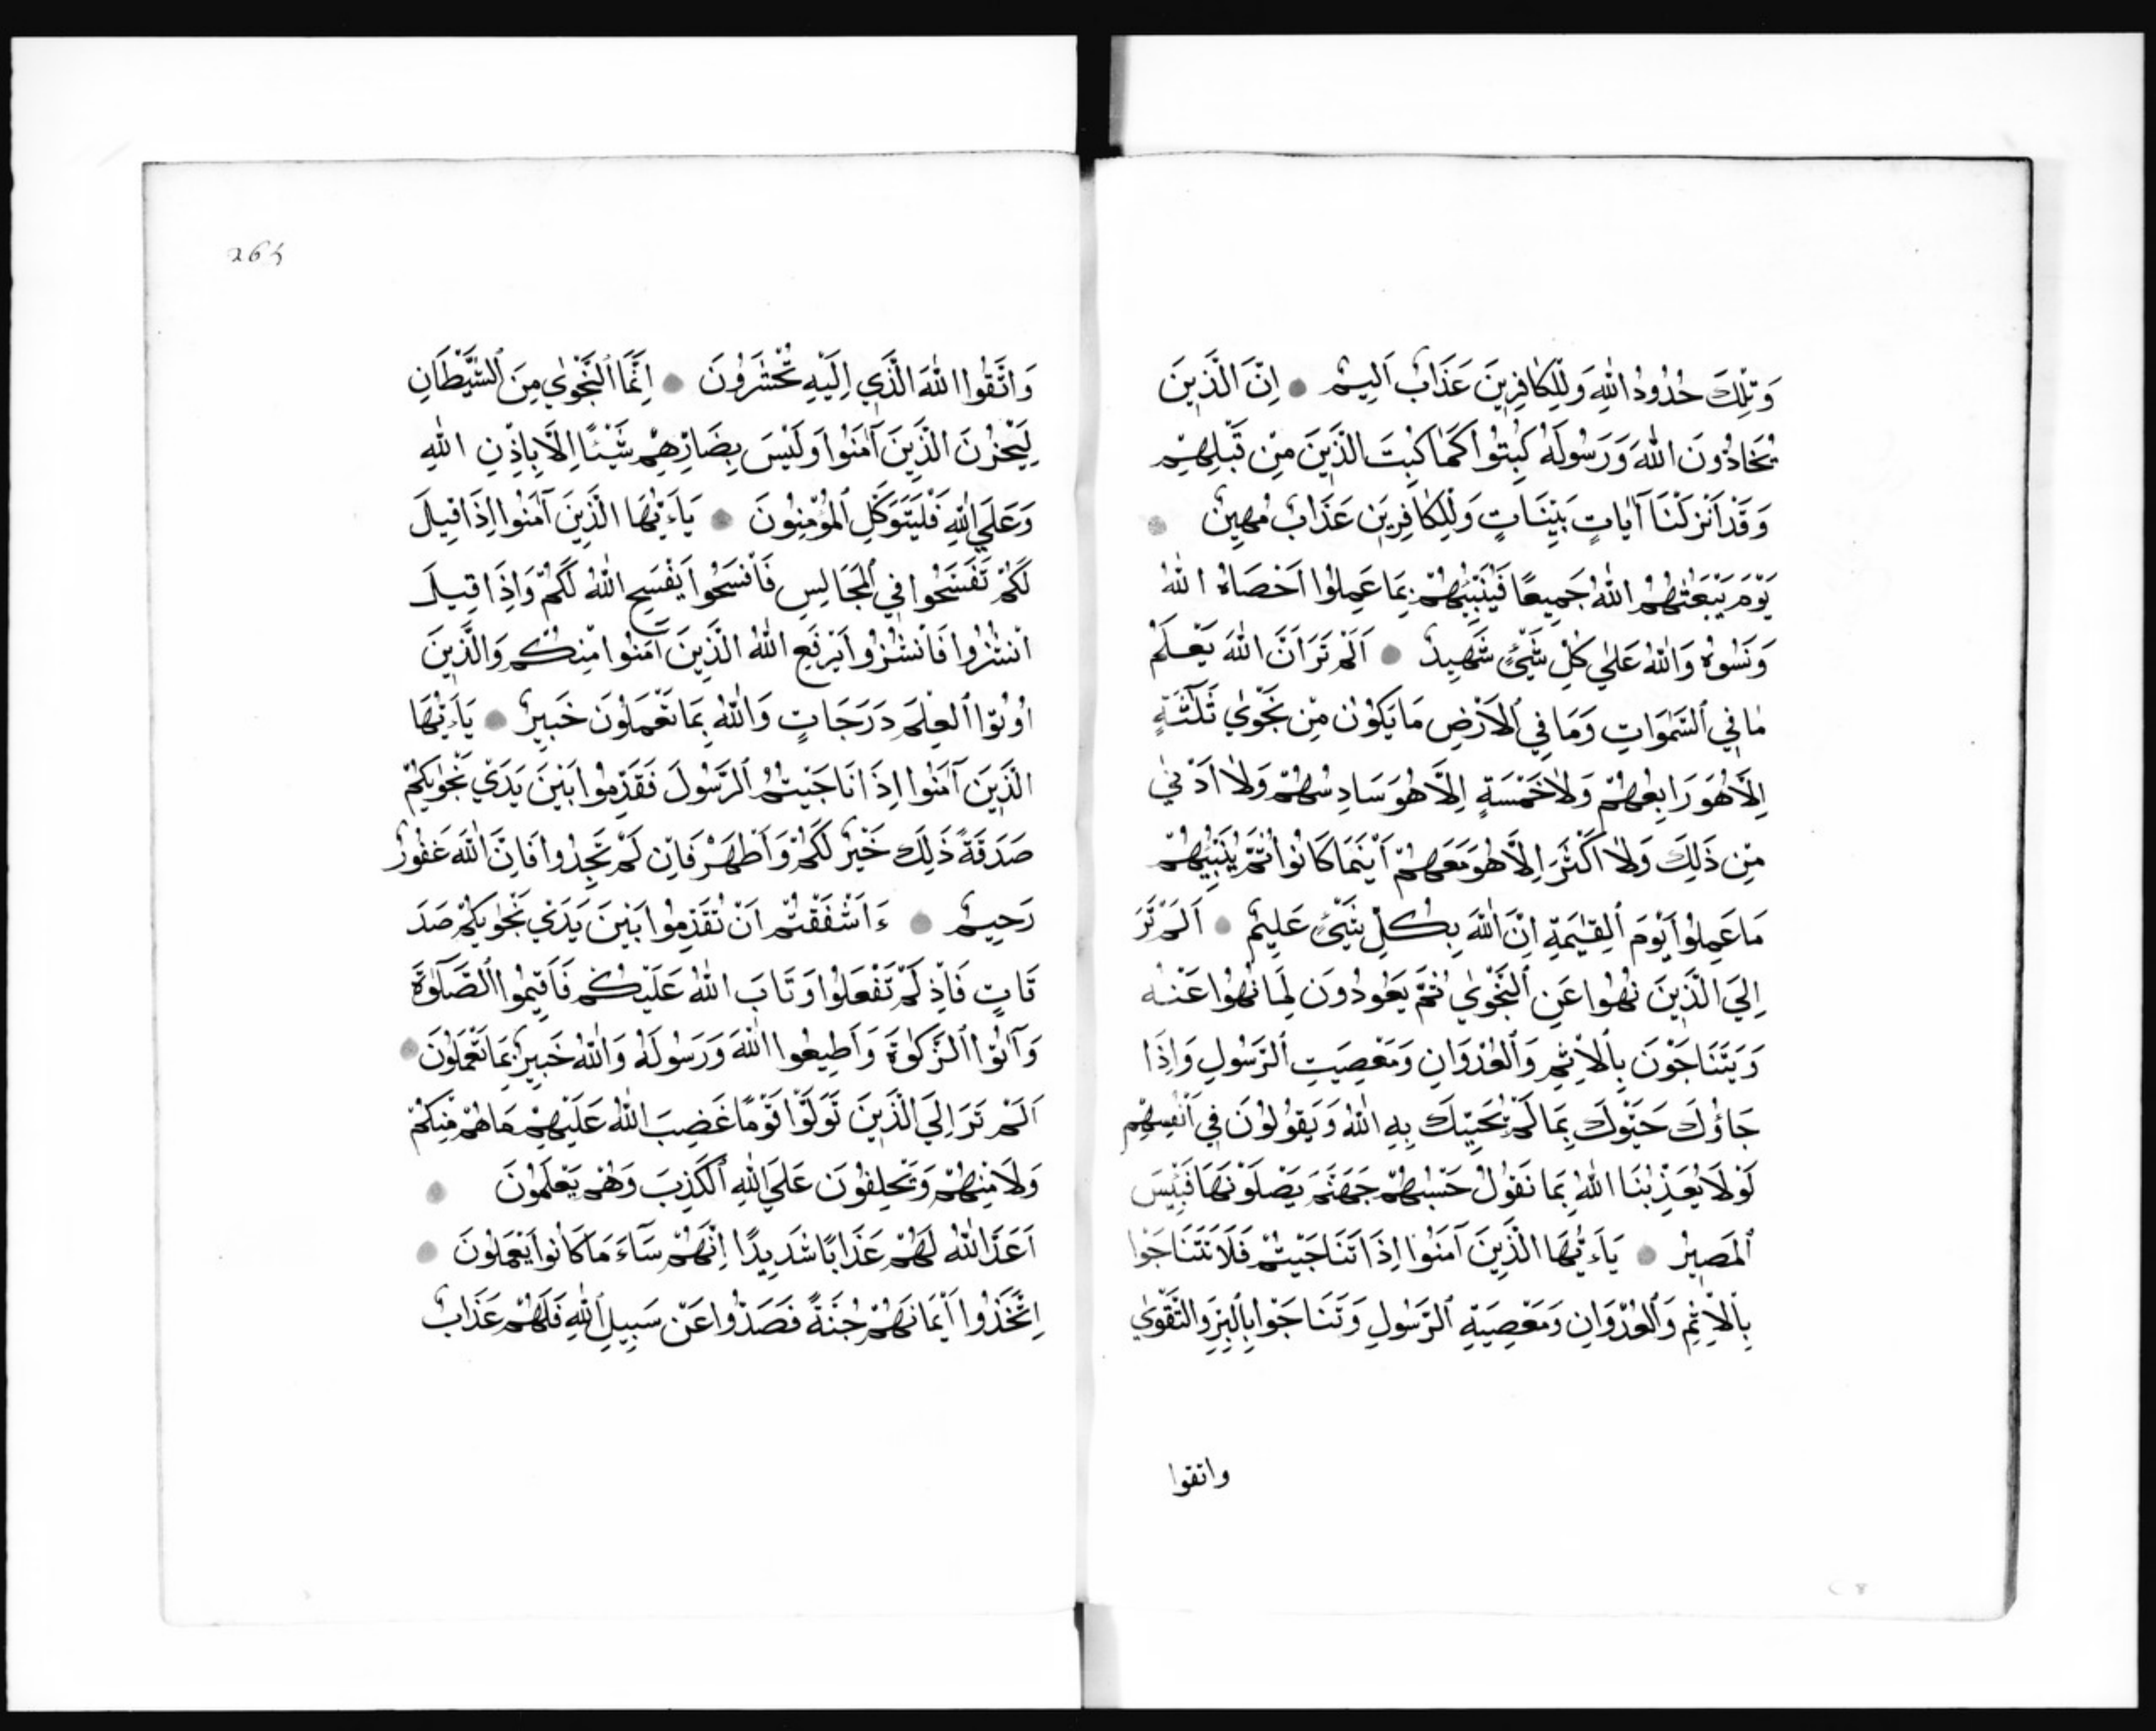 وَتِلْكَ حُدُودُ اللّٰهِ وَلِلْكَافِرِينَ عَذَابٌ اَلِيمٌ اِنَّ الَّذِينَ
يُحَادُّونَ اللّٰهَ وَرَسُولَهُ كُبِتُوا كَمَا كُبِتَ الَّذِينَ مِنْ قَبْلِهِمْ
وَقَدْ اَنْزَلْنَا آيَاتٍ بَيِّنَاتٍ وَلِلْكَافِرِينَ عَذَابٌ مُهِينٌ
يَوْمَ يَبْعَثُهُمُ اللّٰهُ جَمِيعًا فَيُنَبِّئُهُمْ بِمَا عَمِلُوا اَحْصَاهُ اللّٰهُ
وَنَسُوهُ وَاللّٰهُ عَلٰي كُلِّ شَيْءٍ شَهِيدٌ اَلَمْ تَرَ اَنَّ اللّٰهَ يَعْلَمُ
مَا فِي السَّمٰوَاتِ وَمَا فِي الْاَرْضِ مَا يَكُونُ مِنْ نَجْوٰي ثَلٰثَةٍ
اِلَّا هُوَ رَابِعُهُمْ وَلَا خَمْسَةٍ اِلَّا هُوَ سَادِسُهُمْ وَلَا اَدْنٰي
مِنْ ذَلِكَ وَلَا اَكْثَرَ اِلَّا هُوَ مَعَهُمْ اَيْنَمَا كَانُوا ثُمَّ يُنَبِّئُهُمْ
مَا عَمِلُوا يَوْمَ الْقِيٰمَةِ اِنَّ اللّٰهَ بِكُلِّ شَيْءٍ عَلِيمٌ اَلَمْ تَرَ
اِلَي الَّذِينَ نُهُوا عَنِ النَّجْوٰي ثُمَّ يَعُودُونَ لِمَا نُهُوا عَنْهُ
وَيَتَنَاجَوْنَ بِالْاِثْمِ وَالْعُدْوَانِ وَمَعْصِيَتِ الرَّسُولِ وَاِذَا
جَاؤُكَ حَيَّوْكَ بِمَا لَمْ يُحَيِّكَ بِهِ اللّٰهُ وَيَقُولُونَ فِي اَنْفُسِهِمْ
لَوْلَا يُعَذِّبُنَا اللّٰهُ بِمَا نَقُولُ حَسْبُهُمْ جَهَنَّمُ يَصْلَوْنَهَا فَبِئْسَ
الْمَصِيرُ يَآءَيُّهَا الَّذِينَ آمَنُوا اِذَا تَنَاجَيْتُمْ فَلَا تَتَنَاجَوْا
بِالْاِثْمِ وَالْعُدْوَانِ وَمَعْصِيَةِ الرَّسُولِ وَتَنَاجَوْا بِالْبِرِّ وَالتَّقْوٰي
واتقوا
264
وَاتَّقُوا اللّٰهَ الَّذِي اِلَيْهِ تُحْشَرُونَ اِنَّمَا النَّجْوٰي مِنَ الشَّيْطَانِ
لِيَحْزُنَ الَّذِينَ آمَنُوا وَلَيْسَ بِضَارِّهِمْ شَيْئًا اِلَّا بِاِذْنِ اللّٰهِ
وَعَلَي اللّٰهِ فَلْيَتَوَكَّلِ الْمُؤْمِنُونَ يَآءَيُّهَا الَّذِينَ آمَنُوا اِذَا قِيلَ
لَكُمْ تَفَسَّحُوا فِي الْمَجَالِسِ فَافْسَحُوا يَفْسَحِ اللّٰهُ لَكُمْ وَاِذَا قِيلَ
انْشُزُوا فَانْشُزُوا يَرْفَعِ اللّٰهُ الَّذِينَ آمَنُوا مِنْكُمْ وَالَّذِينَ
اُوتُوا الْعِلْمَ دَرَجَاتٍ وَاللّٰهُ بِمَا تَعْمَلُونَ خَبِيرٌ يَآءَيُّهَا
الَّذِينَ آمَنُوا اِذَا نَاجَيْتُمُ الرَّسُولَ فَقَدِّمُوا بَيْنَ يَدَيْ نَجْوٰيكُمْ
صَدَقَةً ذَلِكَ خَيْرٌ لَكُمْ وَاَطْهَرُ فَاِنْ لَمْ تَجِدُوا فَاِنَّ اللّٰهَ غَفُورٌ
رَحِيمٌ ءَاَشْفَقْتُمْ اَنْ تُقَدِّمُوا بَيْنَ يَدَيْ نَجْوٰيكُمْ صَدَ
قَاتٍ فَاِذْ لَمْ تَفْعَلُوا وَتَابَ اللّٰهُ عَلَيْكُمْ فَاَقِيمُوا الصَّلٰوةَ
وَآتُوا الزَّكٰوةَ وَاَطِيعُوا اللّٰهَ وَرَسُولَهُ وَاللّٰهُ خَبِيرٌ بِمَا تَعْمَلُونَ
اَلَمْ تَرَ اِلَي الَّذِينَ تَوَلَّوْا قَوْمًا غَضِبَ اللّٰهُ عَلَيْهِمْ مَا هُمْ مِنْكُمْ
وَلَا مِنْهُمْ وَيَحْلِفُونَ عَلَي اللّٰهِ الْكَذِبَ وَهُمْ يَعْلَمُونَ
اَعَدَّ اللّٰهُ لَهُمْ عَذَابًا شَدِيدًا اِنَّهُمْ سَآءَ مَا كَانُوا يَعْمَلُونَ
اِتَّخَذُوا اَيْمَانَهُمْ جُنَّةً فَصَدُّوا عَنْ سَبِيلِ اللّٰهِ فَلَهُمْ عَذَابٌ